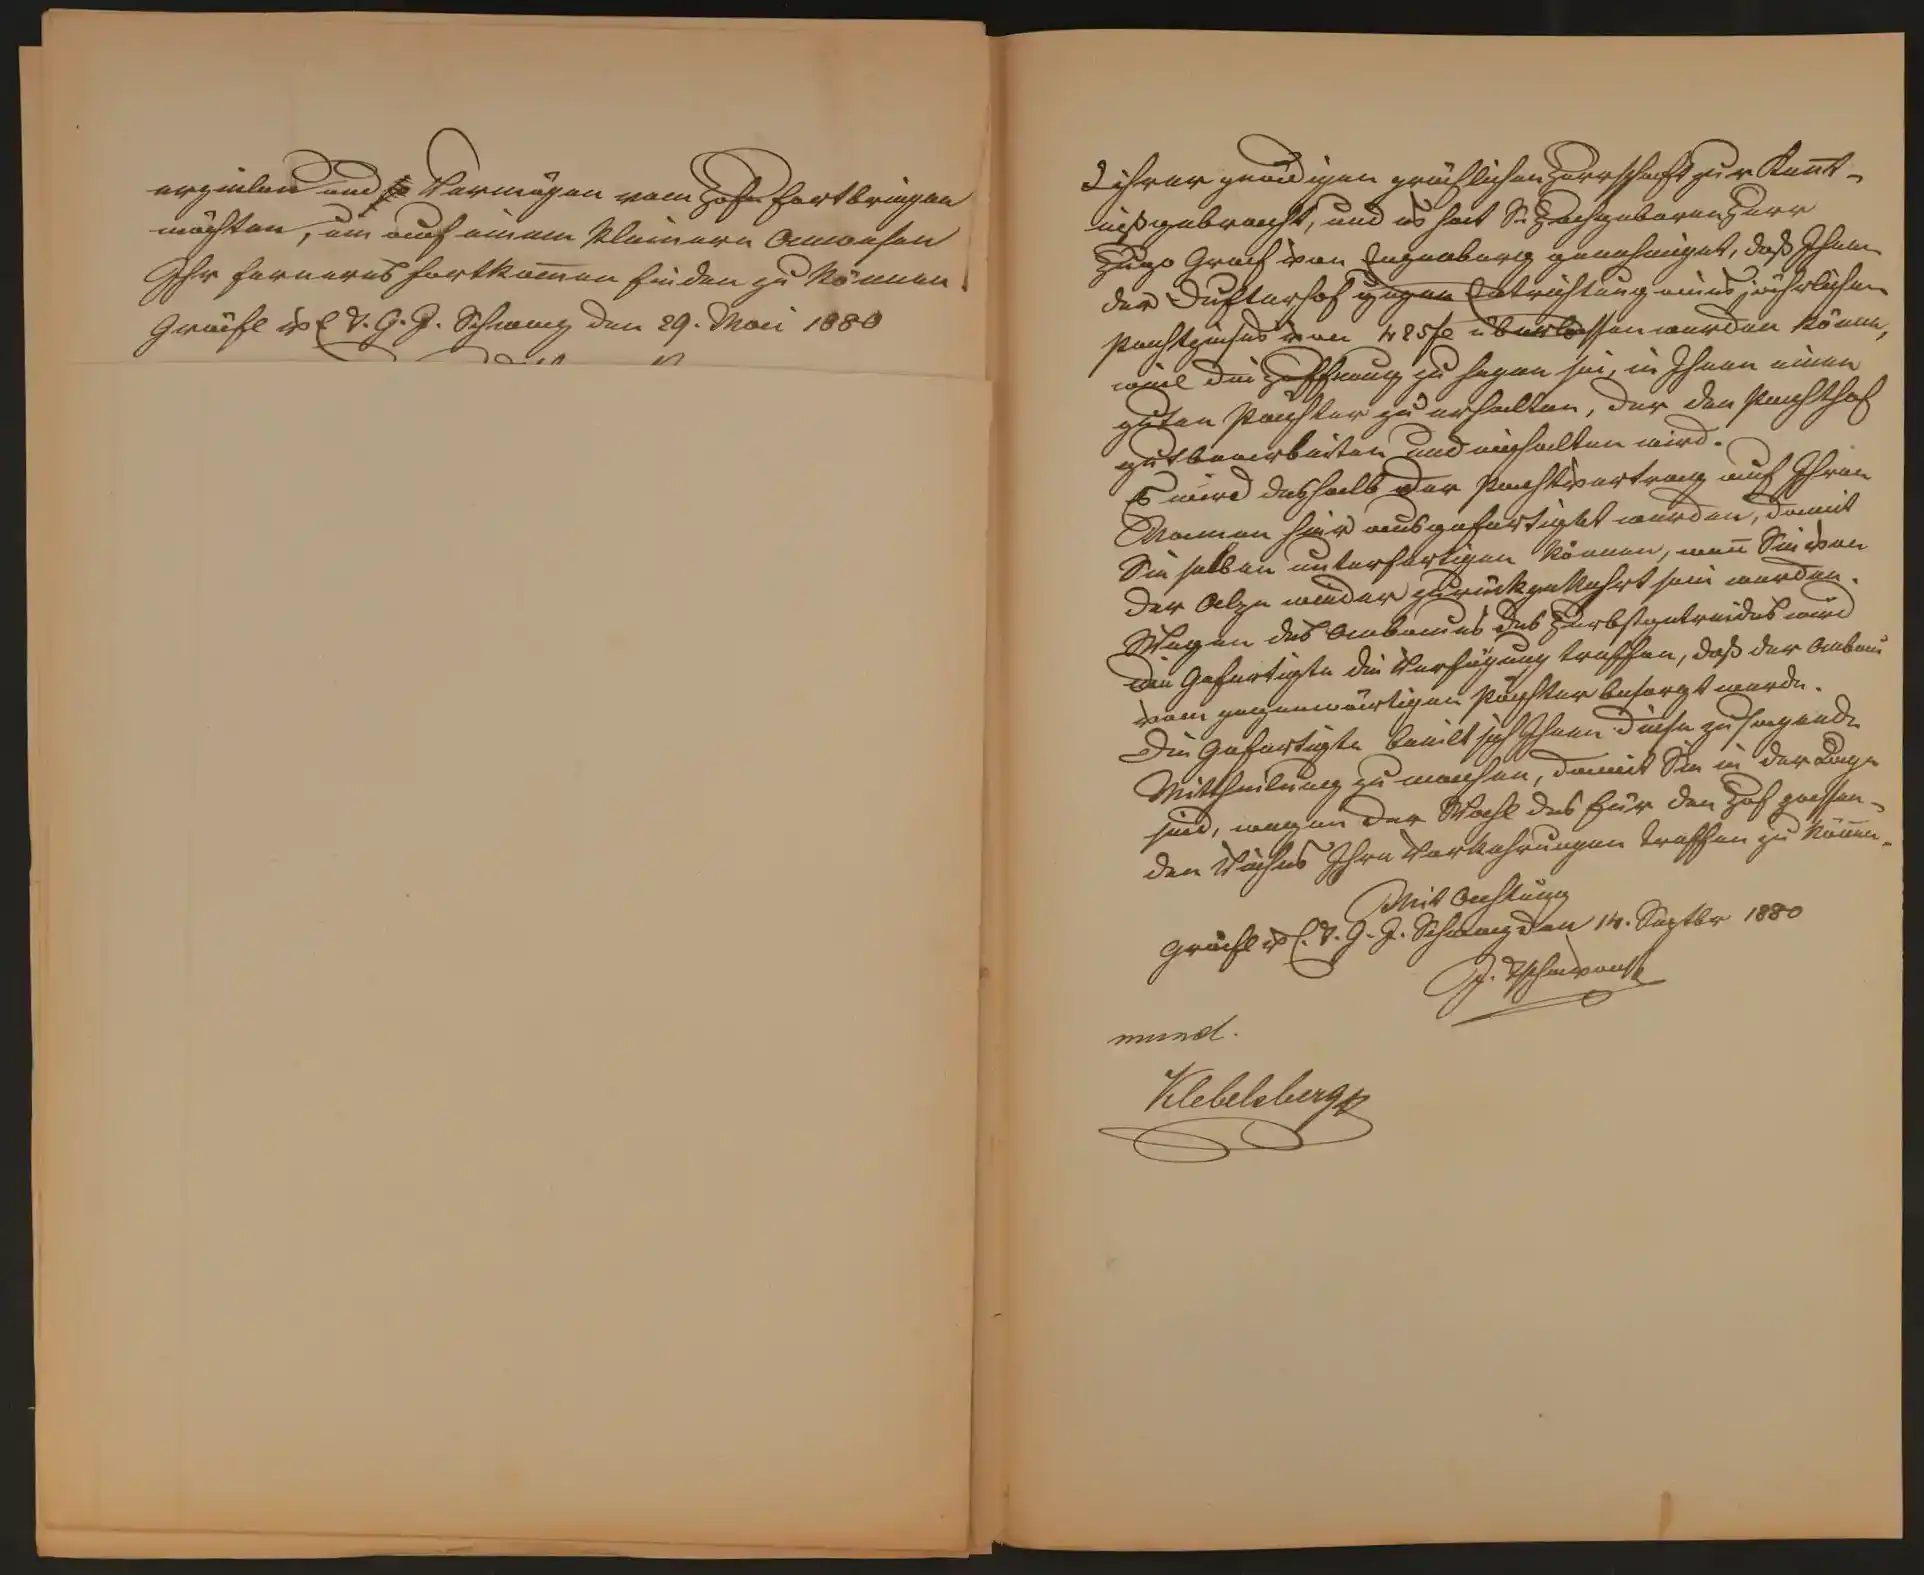 erzielen und so Vermögen vom Hofe fortbringen
möchten, um auf einem kleinern Anwesen
Ihr ferneres Fortkom̄en finden zu können.
Gräfl v E. V. G. J. Schwaz den 29. Mai 1880
ihrer gnädigen gräflichen Herrschaft zur Kent̄-
niß gebracht, und es hat Sr Hochgeboren Herr
Hugo Graf von Enzenberg genehmiget, daß Ihnen
der Dufterhof gegen Entrichtung eines jährlichen
Pachtzinses von 425 fl überlassen werden könne,
weil die Hoffnung zu hegen sei, in Ihnen einen
guten Pächter zu erhalten, der den Pachthof
gut bearbeiten und einhalten wird.
Es wird deshalb der Pachtvertrag auf Ihren
Namen hier ausgefertiget werden, damit
Sie selben unterfertigen können, wen̄ Sie von
der Alpe wieder zurückgekehrt sein werden.
Wegen des Anbaues des Herbstgetreides wird
die Gefertigte die Verfügung treffen, daß der Anbau
vom gegenwärtigen Pächter besorgt werde.
Die Gefertigte beeilt sich Ihnen diese zusagende
Mittheilung zu machen, damit Sie in der Lage
sind, wegen der Wahl des für den Hof passen-
den Viehes Ihre Vorkehrungen treffen zu kön̄en.
Mit Achtung
Gräfl v E. V. G. J. Schwaz den 14. Septbr 1880
mund.
Klebelsberg